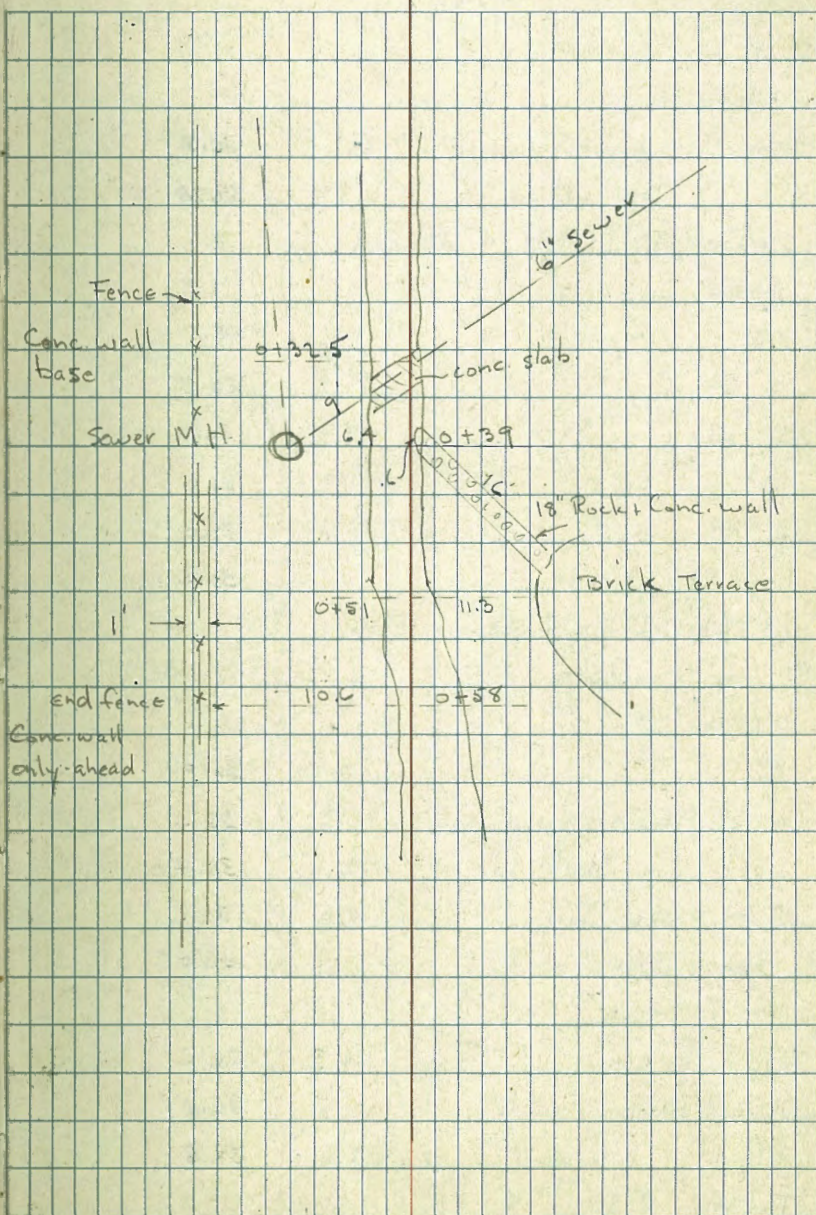 6" Sewer
Fence
Conc. wall
base
0+32.5
conc. slab.
9
Sewer M H
6.4
0+39
.6
16
18" Rock + Conc. wall
Brick Terrace
0+51
11.3
1'
end fence
10.6
0+58
Conc. wall
only-ahead